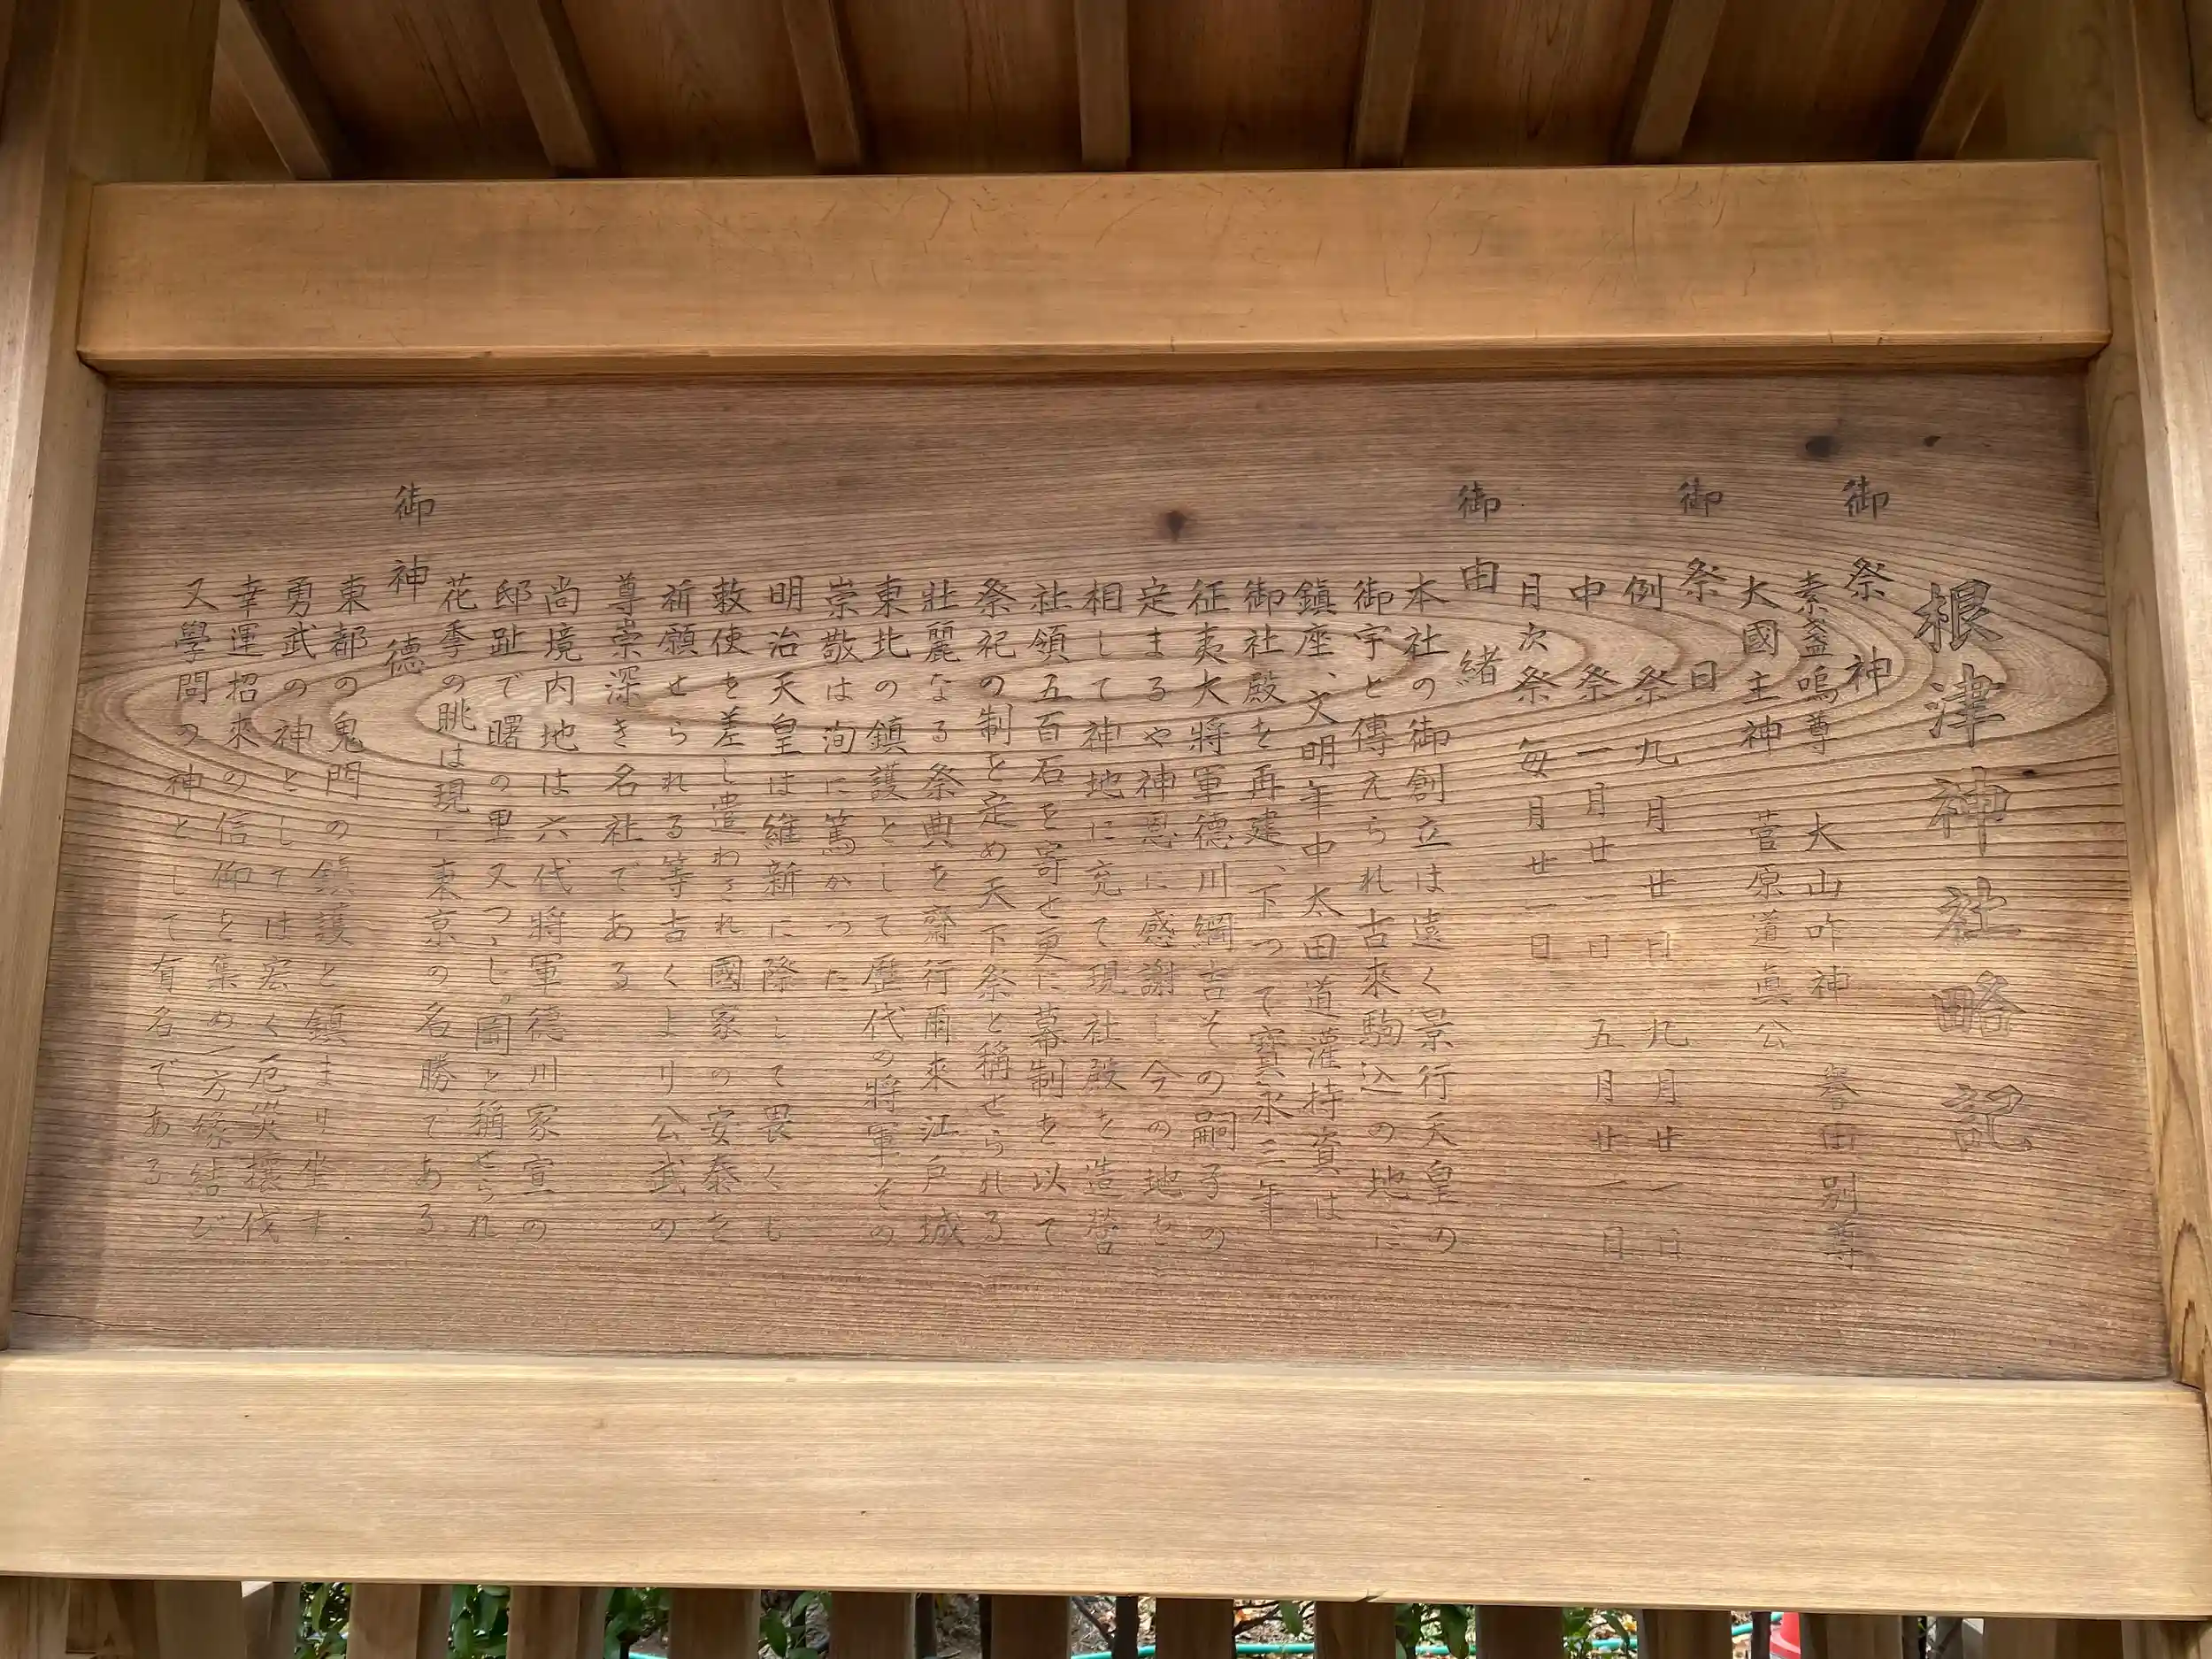 根津神社略記
御祭神
素盞嗚尊 大山咋神 誉田別尊
大國主神 菅原道眞公
御祭日
例祭 九月廿日 九月廿一日
中祭 一月廿一日 五月廿一日
月次祭 毎月廿一日
御由緒
本社の御創立は遠く景行天皇の
御宇と傳えられ古來駒込の地に
鎮座、文明年中太田道灌持資は
御社殿を再建、下つて寳永三年
征夷大將軍德川綱吉その嗣子の
定まるや神恩に感謝し今の地を
相して神地に充て現社殿を造營
社領五百石を寄せ更に幕制を以て
祭祀の制を定め天下祭と稱せられる
壯麗なる祭典を齋行爾來江戸城
東北の鎮護として歴代の將軍その
崇敬は洵に篤かつた
明治天皇は維新に際して畏くも
敕使を差し遣わされ國家の安泰を
祈願せられる等古くより公武の
尊崇深き名社である
尚境内地は六代將軍德川家宣の
邸趾で曙の里又つゝじヶ岡と稱せられ
花季の眺は現に東京の名勝である
御神徳
東都の鬼門の鎮護と鎮まり坐す.
勇武の神としては宏く厄災攘伐
幸運招來の信仰を集め一方縁結び
又學問の神として有名である